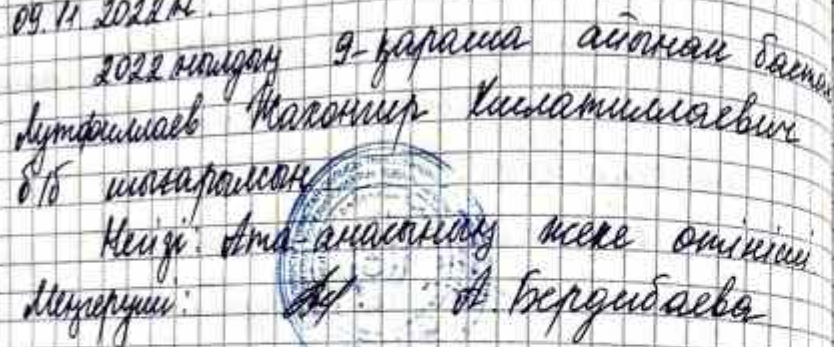 09.11.2022ж.
2022 жылдың 9-қараша айынан бастап
Лутфиллаев Жахонгир Хислатиллаевич
б/б шығарылсын
Негізі: Ата-анасының жеке өтініші
Меңгеруші: А. Бердибаева